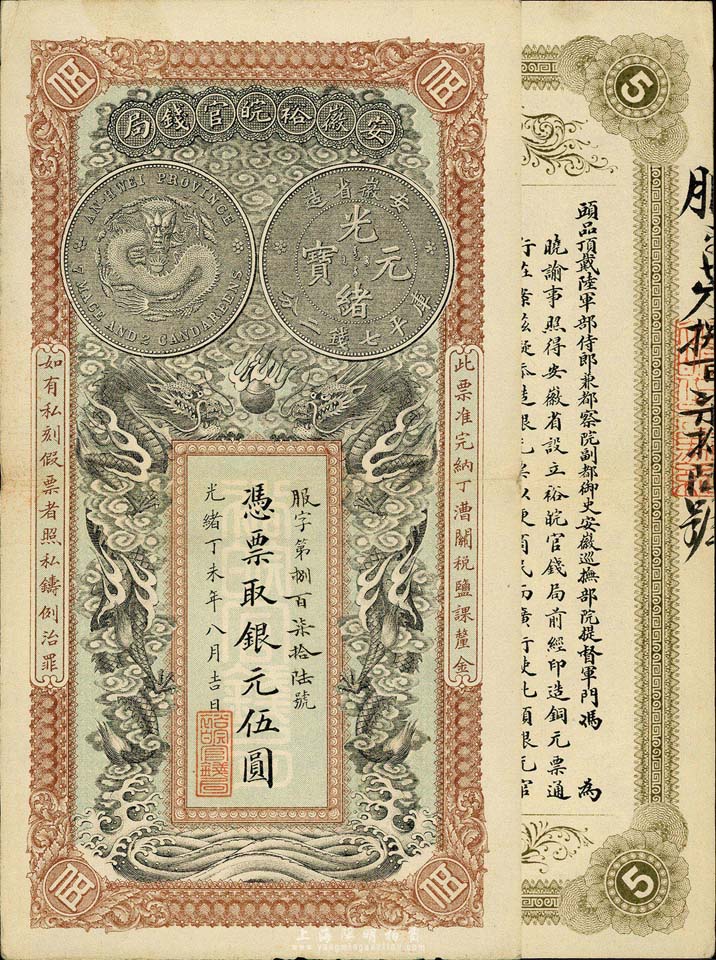 安徽裕皖官錢局
AN-HWEI PROVINCE
7 MACE AND 2 CANDAREENS
安徽省造
光緒元寶
庫平七錢二分
此票准完納丁漕關稅鹽課釐金
如有私刻假票者照私鑄例治罪
服字第捌百柒拾陸號
憑票取銀元伍圓
光緒丁未年八月吉日
伍
伍
伍
伍
5
5
頭品頂戴陸軍部侍郎兼都察院副都御史安徽巡撫部院提督軍門馮 為
曉諭事照得安徽省設立裕皖官錢局前經印造銅元票通
捌百柒拾陸號